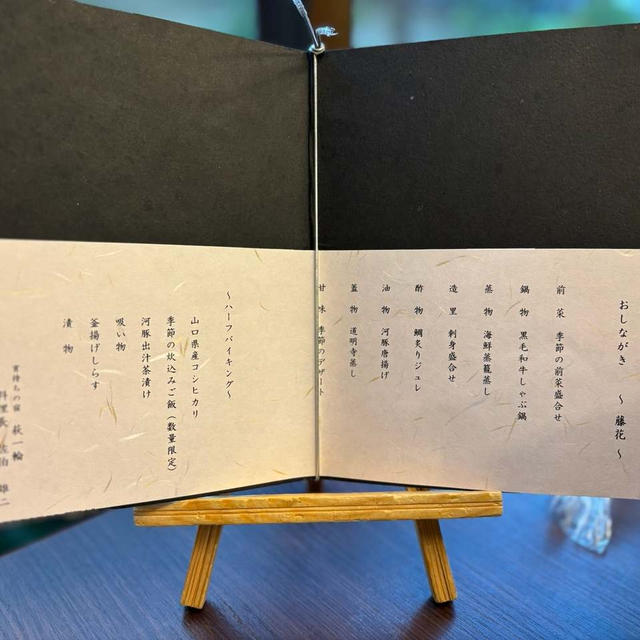 おしながき 〜 藤花 〜
前菜 季節の前菜盛合せ
鍋物 黒毛和牛しゃぶ鍋
蒸物 海鮮蒸籠蒸し
造里 刺身盛合せ
酢物 鯛炙りジュレ
油物 河豚唐揚げ
蓋物 道明寺蒸し
甘味 季節のデザート
〜ハーフバイキング〜
山口県産コシヒカリ
季節の炊込みご飯(数量限定)
河豚出汁茶漬け
吸い物
釜揚げしらす
漬物
宵待ちの宿 萩一輪
料理長 佐伯 雄二